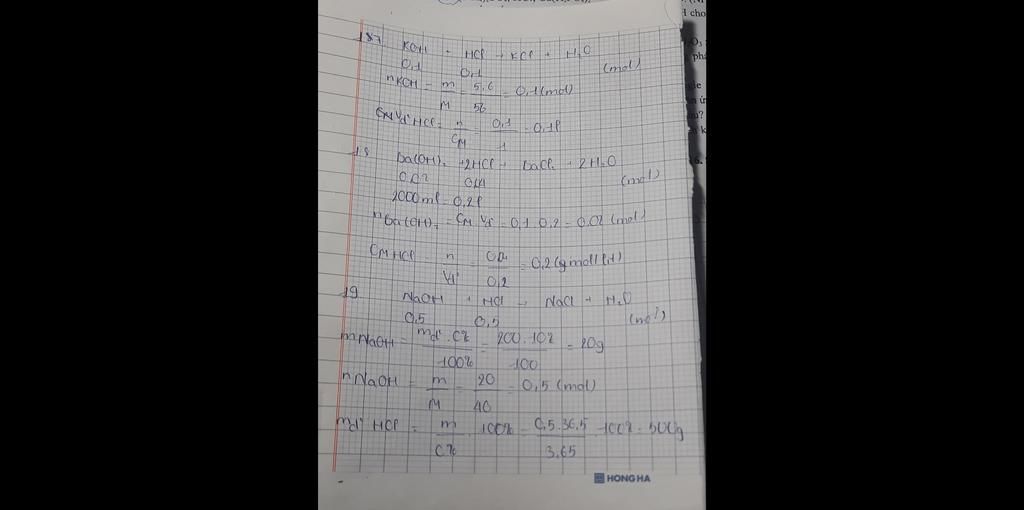 187 KOH + HCl → KCl + H₂O
0,1 0,1 (mol)
nKOH = m/M = 5,6/56 = 0,1 (mol)
CM Vd² HCl = n/CM = 0,1/1 = 0,1l
18 Ba(OH)₂ +2HCl → BaCl₂ + 2H₂O
0,02 0,04 (mol)
2000ml = 0,2l
nBa(OH)₂ = CM. Vd² = 0,1.0,2 = 0.02 (mol)
CM HCl = n/Vd² = 0,04/0,2 = 0,2 (gmol/lit)
19 NaOH + HCl → NaCl + H₂O
0,5 0,5 (mol)
mNaOH = md².C%/100% = 200.10%/100 = 20g
nNaOH = m/M = 20/40 = 0,5 (mol)
md² HCl = m/C% . 100% = 0,5.36,5/3,65 .100% = 500g
HONG HA